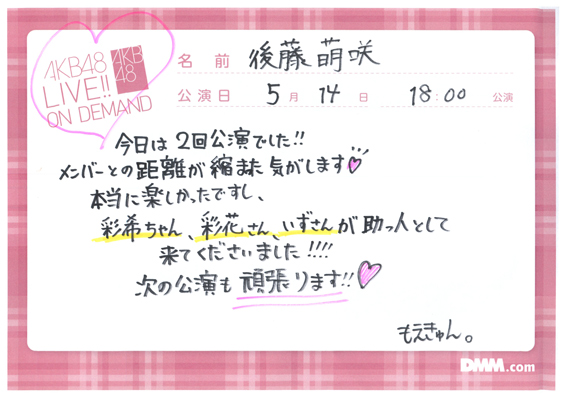 AKB48
LIVE!!
ON DEMAND
AKB
48
名前 後藤萌咲
公演日 5月 14日 18:00 公演
今日は2回公演でした!!
メンバーとの距離が縮また気がします
本当に楽しかったですし、
彩希ちゃん、彩花さん、いずさんが助っ人として
来てくださいました!!!!
次の公演も頑張ります!!
もえきゅん。
DMM.com